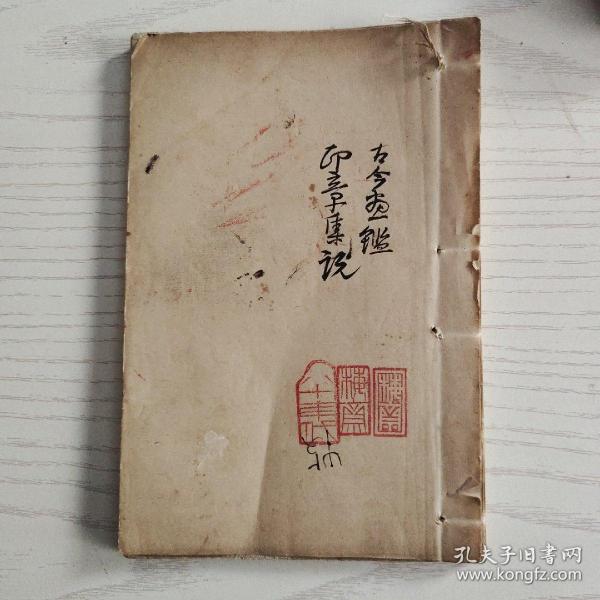 古今画鑑
印章集说
梅斋
梅斋
孔夫子旧书网
www.kongfz.com